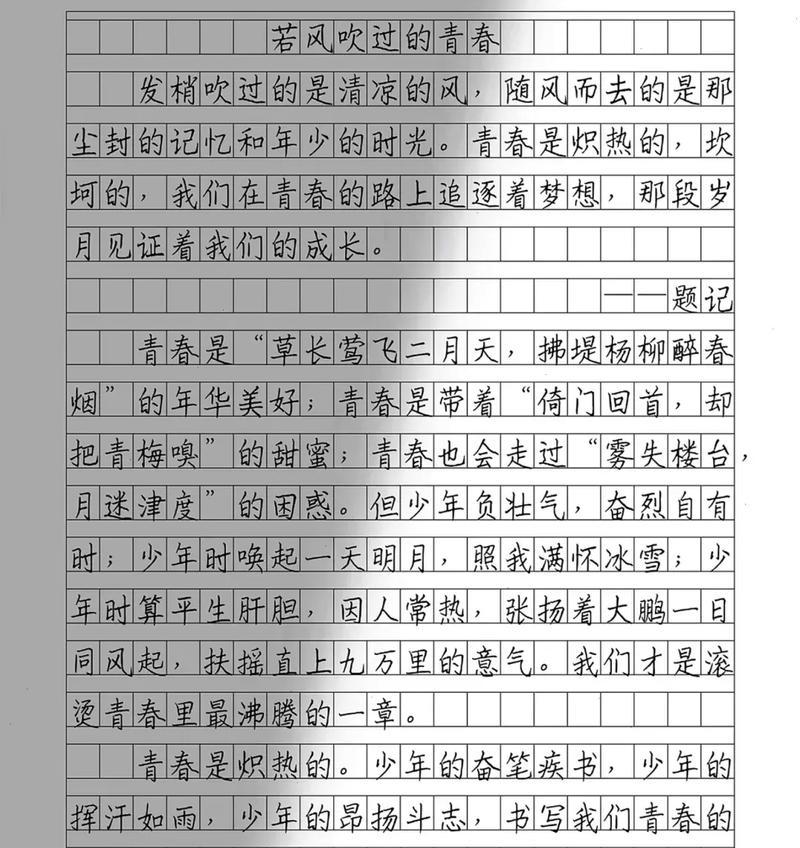 若风吹过的青春
发梢吹过的是清凉的风，随风而去的是那
尘封的记忆和年少的时光。青春是炽热的，坎
坷的，我们在青春的路上追逐着梦想，那段岁
月见证着我们的成长。
——题记
青春是“草长莺飞二月天，拂堤杨柳醉春
烟”的年华美好；青春是带着“倚门回首，却
把青梅嗅”的甜蜜；青春也会走过“雾失楼台，
月迷津度”的困惑。但少年负壮气，奋烈自有
时；少年时唤起一天明月，照我满怀冰雪；少
年时算平生肝胆，因人常热，张扬着大鹏一日
同风起，扶摇直上九万里的意气。我们才是滚
烫青春里最沸腾的一章。
青春是炽热的。少年的奋笔疾书，少年的
挥汗如雨，少年的昂扬斗志，书写我们青春的